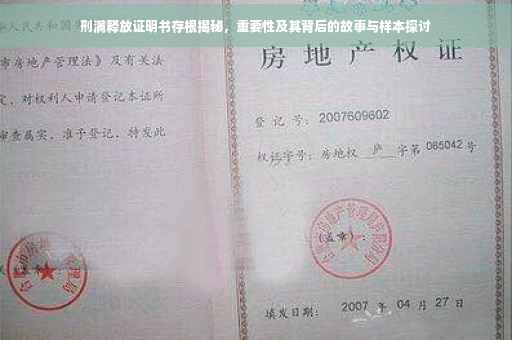 刑满释放证明书存根揭秘，重要性及其背后的故事与样本探讨
华人民共和国
市房地产管理法》及有关法
定，对权利人申请登记本证所
审查属实，准予登记，特发此
房地产权
登记号：2007609602
权证字号：房地权庐字第085042号
（盖章）：
填发日期：2007年04月27日